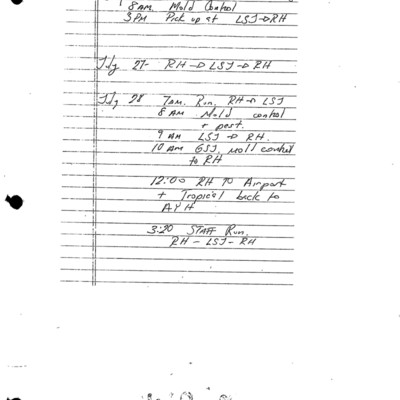 8 AM Mold Control
3PM Pick up at LSJ→RH
July 27- RH→LSJ→RH
July 28 7am. Run, RH→LSJ
8 AM Mold control
+ pest.
9 AM LSJ→RH.
10 AM GSJ, moll control
to RH
12:00 RH TO Airport
+ Tropical back to
AYH
3:20 STAFF Run.
RH - LSJ - RH